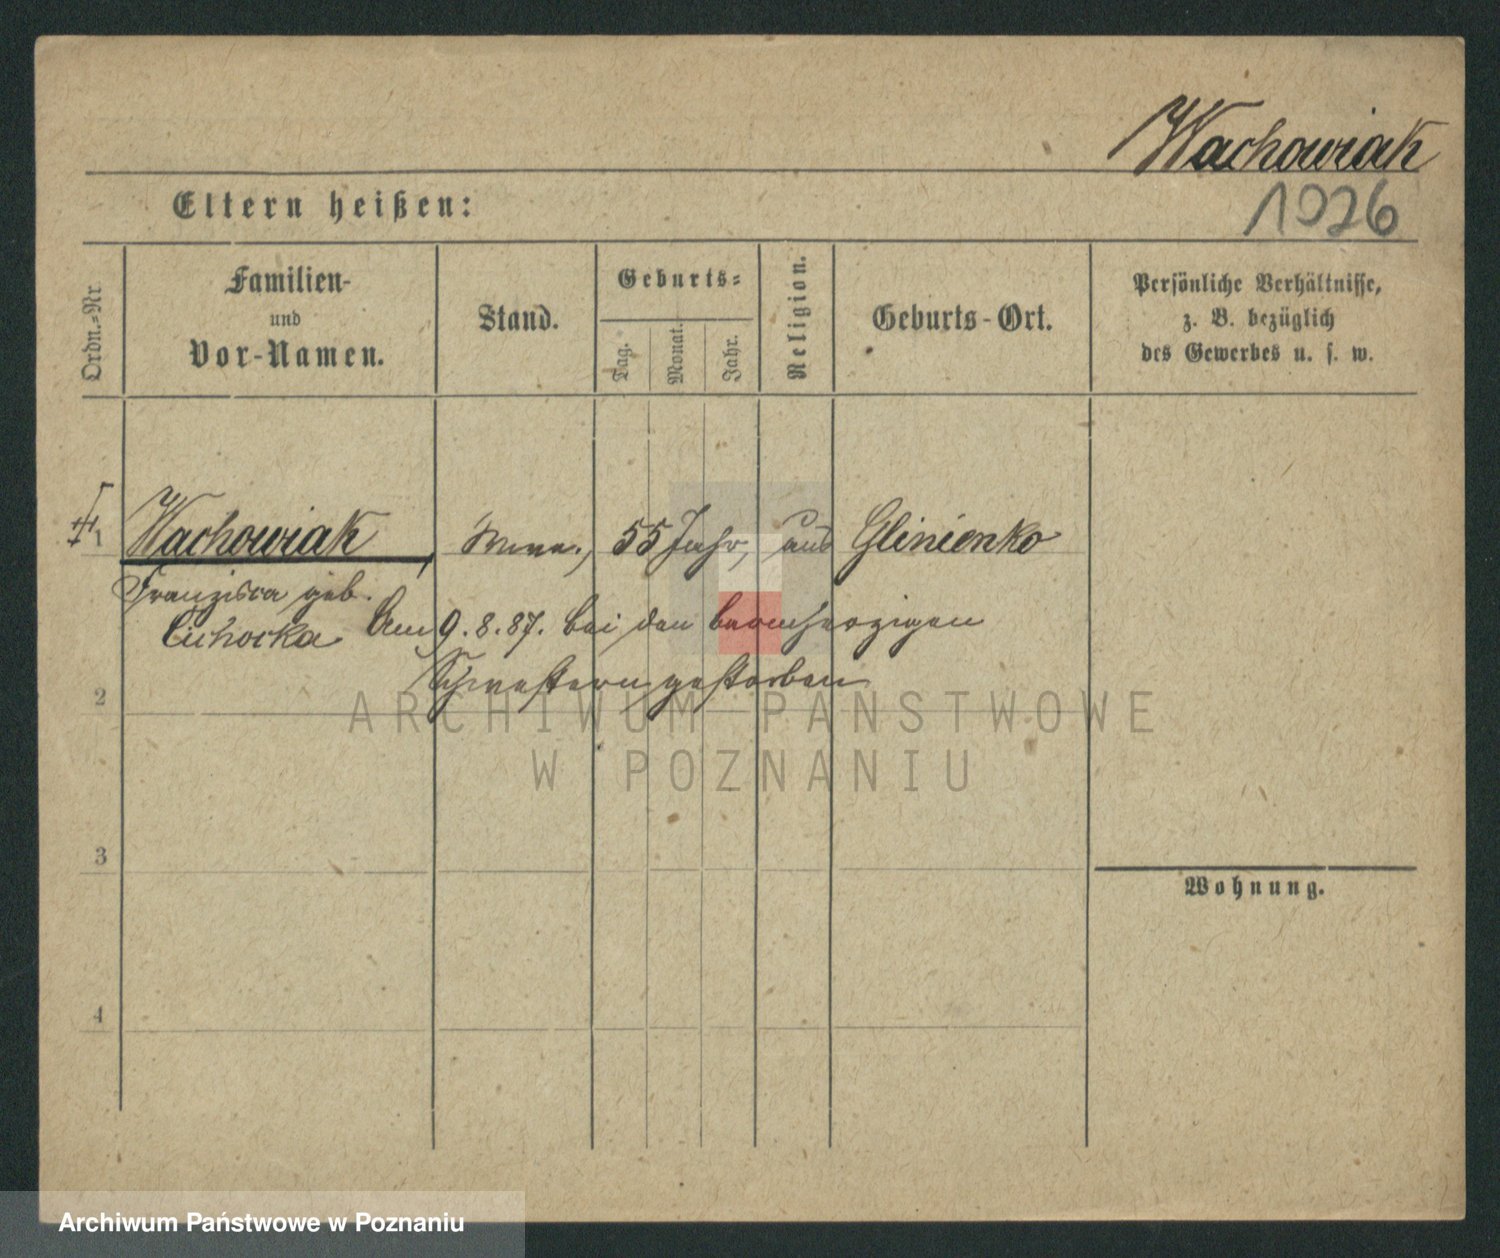 Wachowiak
1026
Eltern heißen:
Ordn.-Nr.
Familien-
und
Vor-Namen.
Stand.
Geburts-
Tag.
Monat.
Jahr.
Religion.
Geburts-Ort.
Persönliche Verhältnisse,
z. B. bezüglich
des Gewerbes u. s. w.
1 Wachowiak, 55 Jahr, aus Glinienko
Franziska geb.
Cichocka Am 9.8.87. bei den barmherzigen
Schwestern gestorben
2
3
4
Wohnung.
ARCHIWUM PAŃSTWOWE
W POZNANIU
Archiwum Państwowe w Poznaniu